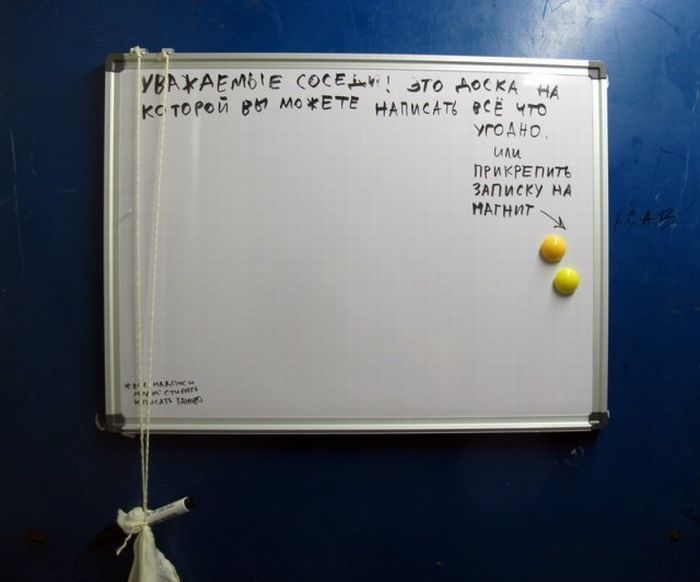 УВАЖАЕМЫЕ СОСЕДИ! ЭТО ДОСКА НА
КОТОРОЙ ВЫ МОЖЕТЕ НАПИСАТЬ ВСЁ ЧТО
УГОДНО.
ИЛИ
ПРИКРЕПИТЬ
ЗАПИСКУ НА
МАГНИТ
ACAB
НАДПИСИ
ПИСАТЬ ЗАНОВО